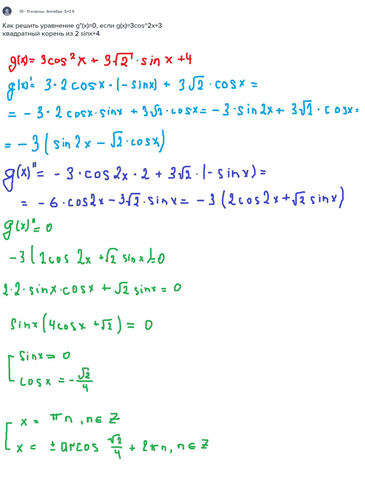 10 - 11 классы · Алгебра · 5+3 б
Как решить уравнение g"(x)=0, если g(x)=3cos^2x+3
квадратный корень из 2 sinx+4
g(x) = 3cos²x + 3√2 · sin x + 4
g(x)' = 3·2 cosx · (-sinx) + 3√2 · cosx =
= -3·2 cosx·sinx + 3√2·cosx = -3·sin2x + 3√2·cosx =
= -3(sin2x - √2·cosx)
g(x)'' = -3·cos2x·2 + 3√2·(-sinx) =
= -6·cos2x - 3√2·sinx = -3(2cos2x + √2 sinx)
g(x)'' = 0
-3(2cos 2x + √2 sinx) = 0
2·2·sinx·cosx + √2 sinx = 0
sinx(4cosx + √2) = 0
[ sinx = 0
cosx = -√2/4
[ x = πn, n∈Z
x = ± arcos √2/4 + 2πn, n∈Z